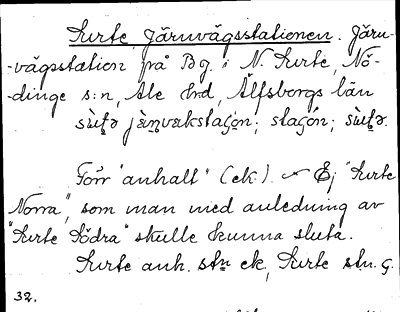 Surte, Järnvägsstationen. Järn-
-vägsstation på Bg. i N. Surte, Nö-
-dinge s:n, Ale hrd, Älfsborgs län
sùt̯ə jæ̀n̯vakstaʃón; staʃón; sùt̯ə.
Förr "anhalt" (ek). – Ej "Surte
Norra", som man med anledning av
"Surte Södra" skulle kunna sluta.
Surte anh. stn ek, Surte stn. G.
32.